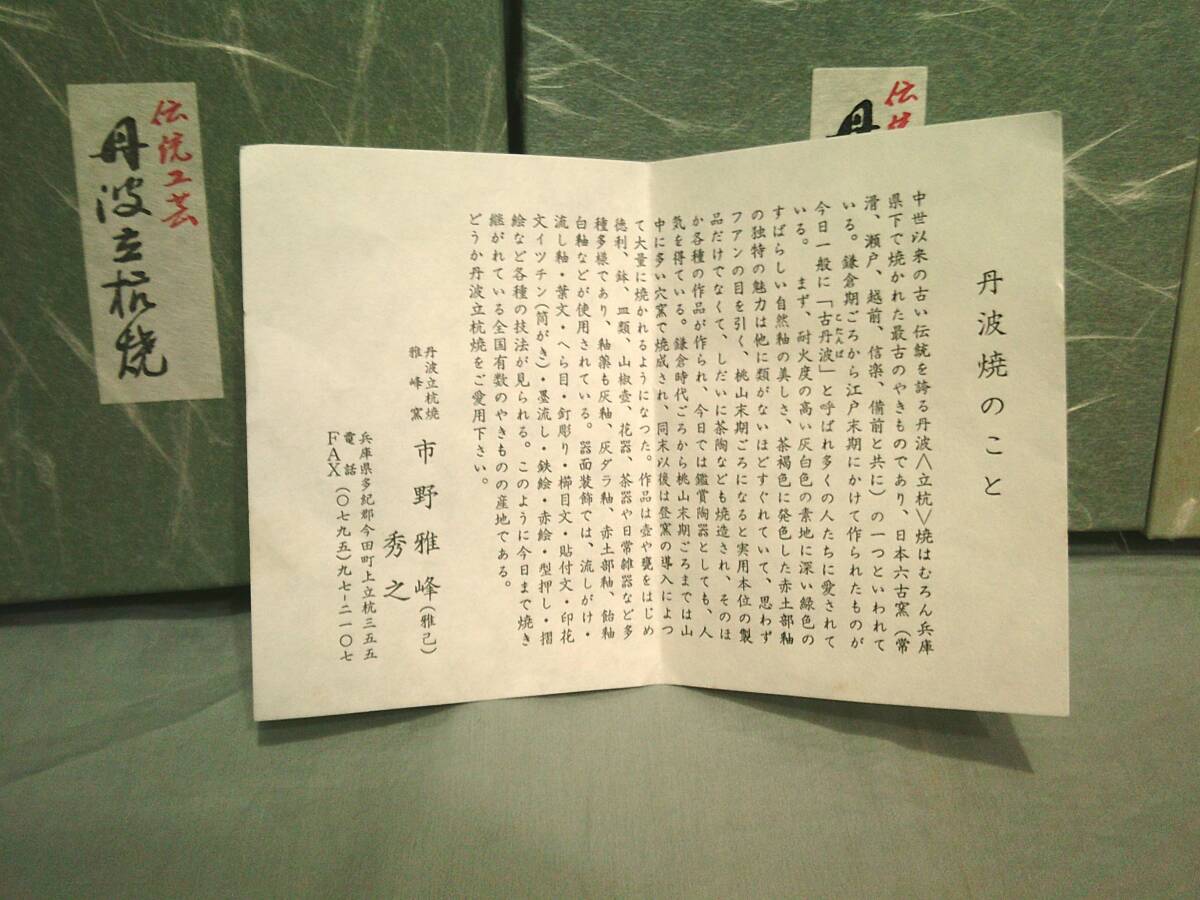 丹波焼のこと
中世以来の古い伝統を誇る丹波〈立杭〉焼はむろん兵庫
県下で焼かれた最古のやきものであり、日本六古窯（常
滑、瀬戸、越前、信楽、備前と共に）の一つといわれて
いる。鎌倉期ごろから江戸末期にかけて作られたものが
今日一般に「古丹波」と呼ばれ多くの人たちに愛されて
こたんば
いる。　まず、耐火度の高い灰白色の素地に深い緑色の
すばらしい自然釉の美しさ、茶褐色に発色した赤土部釉
の独特の魅力は他に類がないほどすぐれていて、思わず
フアンの目を引く、桃山末期ごろになると実用本位の製
品だけでなくて、しだいに茶陶なども焼造され、そのほ
か各種の作品が作られ、今日では鑑賞陶器としても、人
気を得ている。鎌倉時代ごろから桃山末期ごろまでは山
中に多い穴窯で焼成され、同末以後は登窯の導入によつ
て大量に焼かれるようになつた。作品は壺や甕をはじめ
徳利、鉢、皿類、山椒壺、花器、茶器や日常雑器など多
種多様であり、釉薬も灰釉、灰ダラ釉、赤土部釉、飴釉
白釉などが使用されている。器面装飾では、流しがけ・
流し釉・葉文・へら目・釘彫り・櫛目文・貼付文・印花
文イツチン（筒がき）・墨流し・鉄絵・赤絵・型押し・摺
絵など各種の技法が見られる。このように今日まで焼き
継がれている全国有数のやきものの産地である。
どうか丹波立杭焼をご愛用下さい。
丹波立杭焼
雅峰窯
市野雅峰（雅己）
秀之
兵庫県多紀郡今田町上立杭三五五
電話（〇七九五）九七-二一〇七
FAX
伝統工芸
丹波立杭焼
伝統
丹